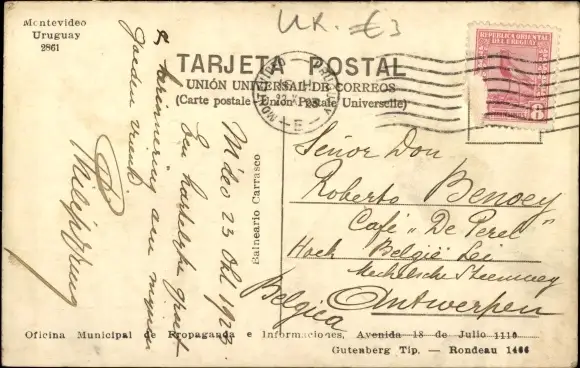 UR. €3
Montevideo
Uruguay
2861
TARJETA POSTAL
UNIÓN UNIVERSAL DE CORREOS
(Carte postale - Union Postale Universelle)
REPUBLICA ORIENTAL
DEL URUGUAY
MONTEVIDEO
URUGUAY
E
Balneario Carrasco
M'deo 23 Okt 1923
Een hartelyke groet
& herinnering aan mijnen
goeden vriend
Señor Don
Roberto Benoey
Café "De Perel"
Hoek België Lei
Mechelsche Steenweg
Antwerpen
Belgica
Oficina Municipal de Propaganda e Informaciones, Avenida 18 de Julio 1110
Gutenberg Tip. — Rondeau 1466